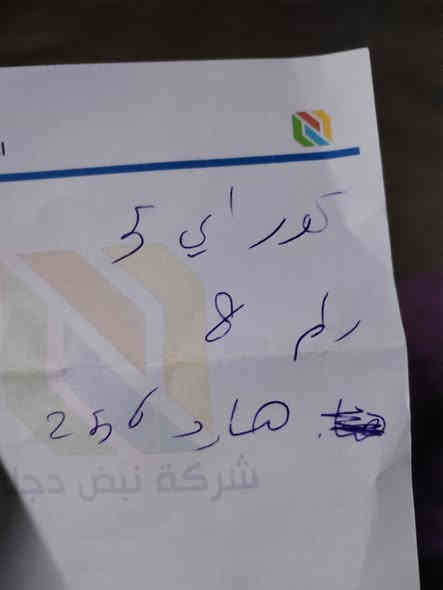 كور اي 5
رام 8
هارد 256
شركة نبض دجلة